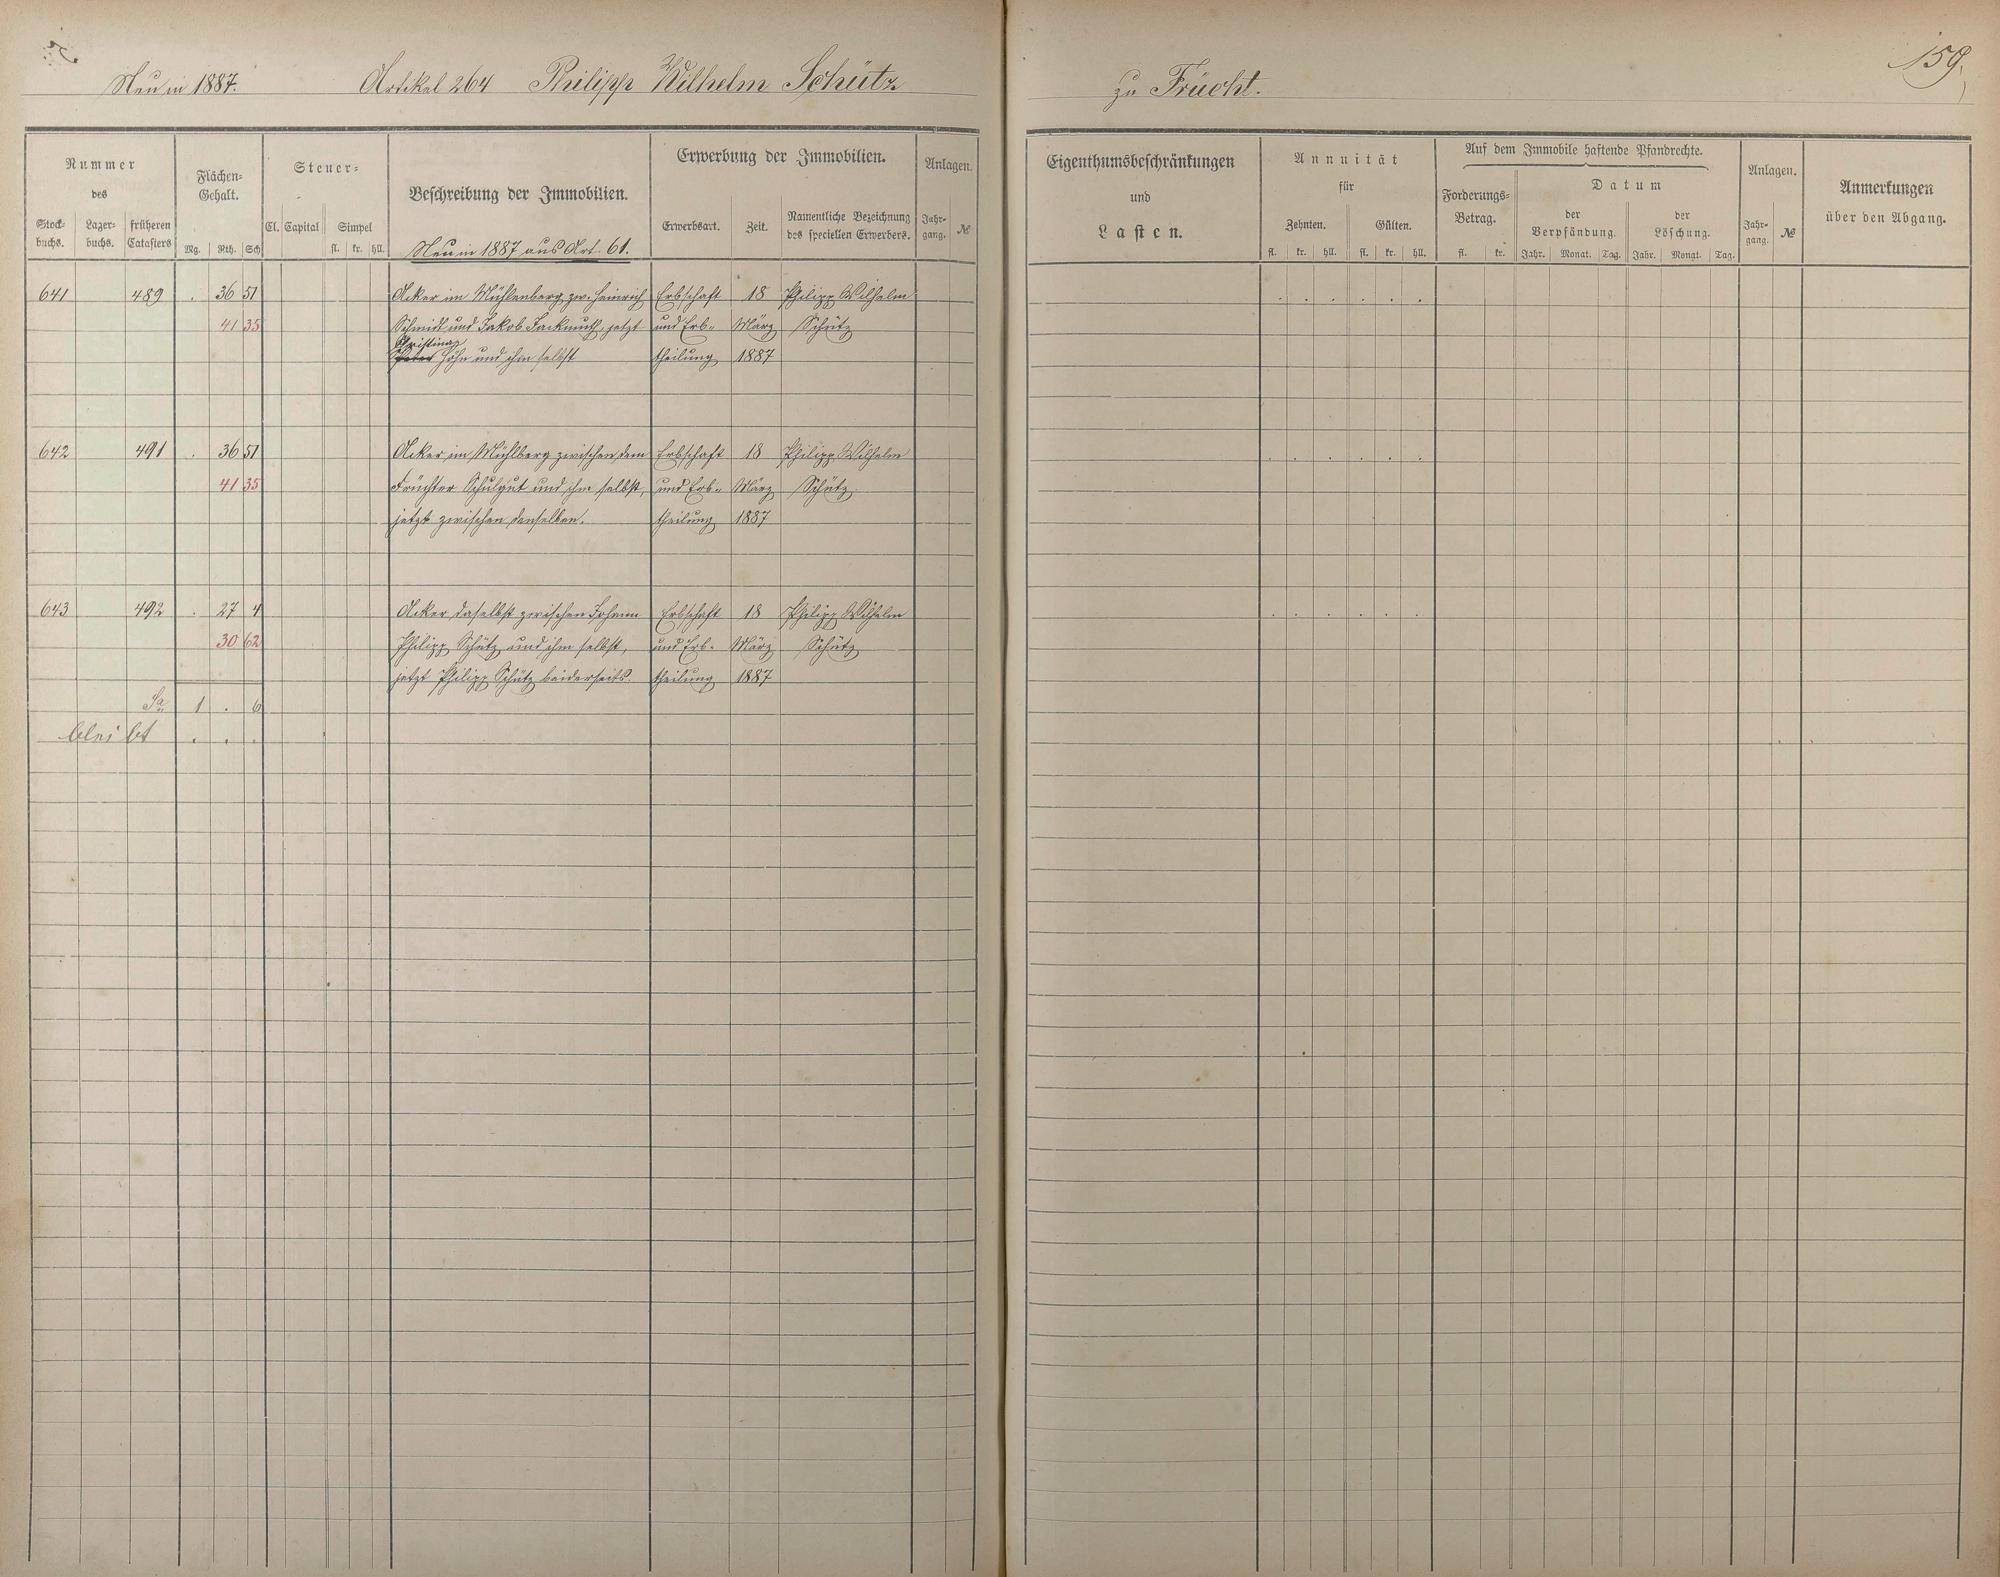 Neu in 1887. Artikel 264 Philipp Wilhelm Schütz zu Frücht. 159.
Nummer
des
Stock-
buchs.
Lager-
buchs.
früheren
Catasters
Flächen-
Gehalt.
Mg. Rth. Sch
Steuer-
Cl. Capital Simpel
fl. kr. hll.
Beschreibung der Immobilien.
Neu in 1887 aus Art. 61.
Erwerbung der Immobilien.
Erwerbsart. Zeit.
Namentliche Bezeichnung
des speciellen Erwerbers.
Anlagen.
Jahr-
gang. №
Eigenthumsbeschränkungen
und
Lasten.
Annuität
für
Zehnten. Gülten.
fl. kr. hll. fl. kr. hll.
Auf dem Immobile haftende Pfandrechte.
Forderungs-
Betrag.
fl. kr.
Datum
der
Verpfändung.
Jahr. Monat. Tag.
der
Löschung.
Jahr. Monat. Tag.
Anlagen.
Jahr-
gang. №
Anmerkungen
über den Abgang.
641 489 . 36 51 Acker im Mühlenberg zw. Heinrich Erbschaft 18 Philipp Wilhelm
41 35 Schmidt und Jakob, jetzt und Erb- März Schütz
Christina
Peter Höhn und ihm selbst theilung 1887
642 491 . 36 51 Acker im Mühlberg zwischen dem Erbschaft 18 Philipp Wilhelm
41 35 Früchter Schulgut und ihm selbst, und Erb- März Schütz
jetzt zwischen denselben. theilung 1887
643 492 . 27 4 Acker daselbst zwischen Johann Erbschaft 18 Philipp Wilhelm
30 62 Philipp Schütz und ihm selbst, und Erb- März Schütz
jetzt Philipp Schütz beiderseits theilung 1887
Sa 1 . 6
bleibt . . .